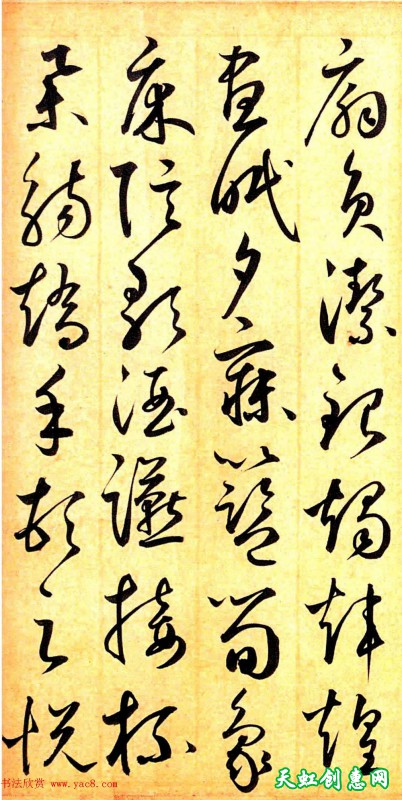 扇員潔銀燭煒煌
晝眠夕寐籃筍象
床弦歌酒讌接杯
舉觴矯手頓足悅
书法欣赏 www.yac8.com
天虹创惠网